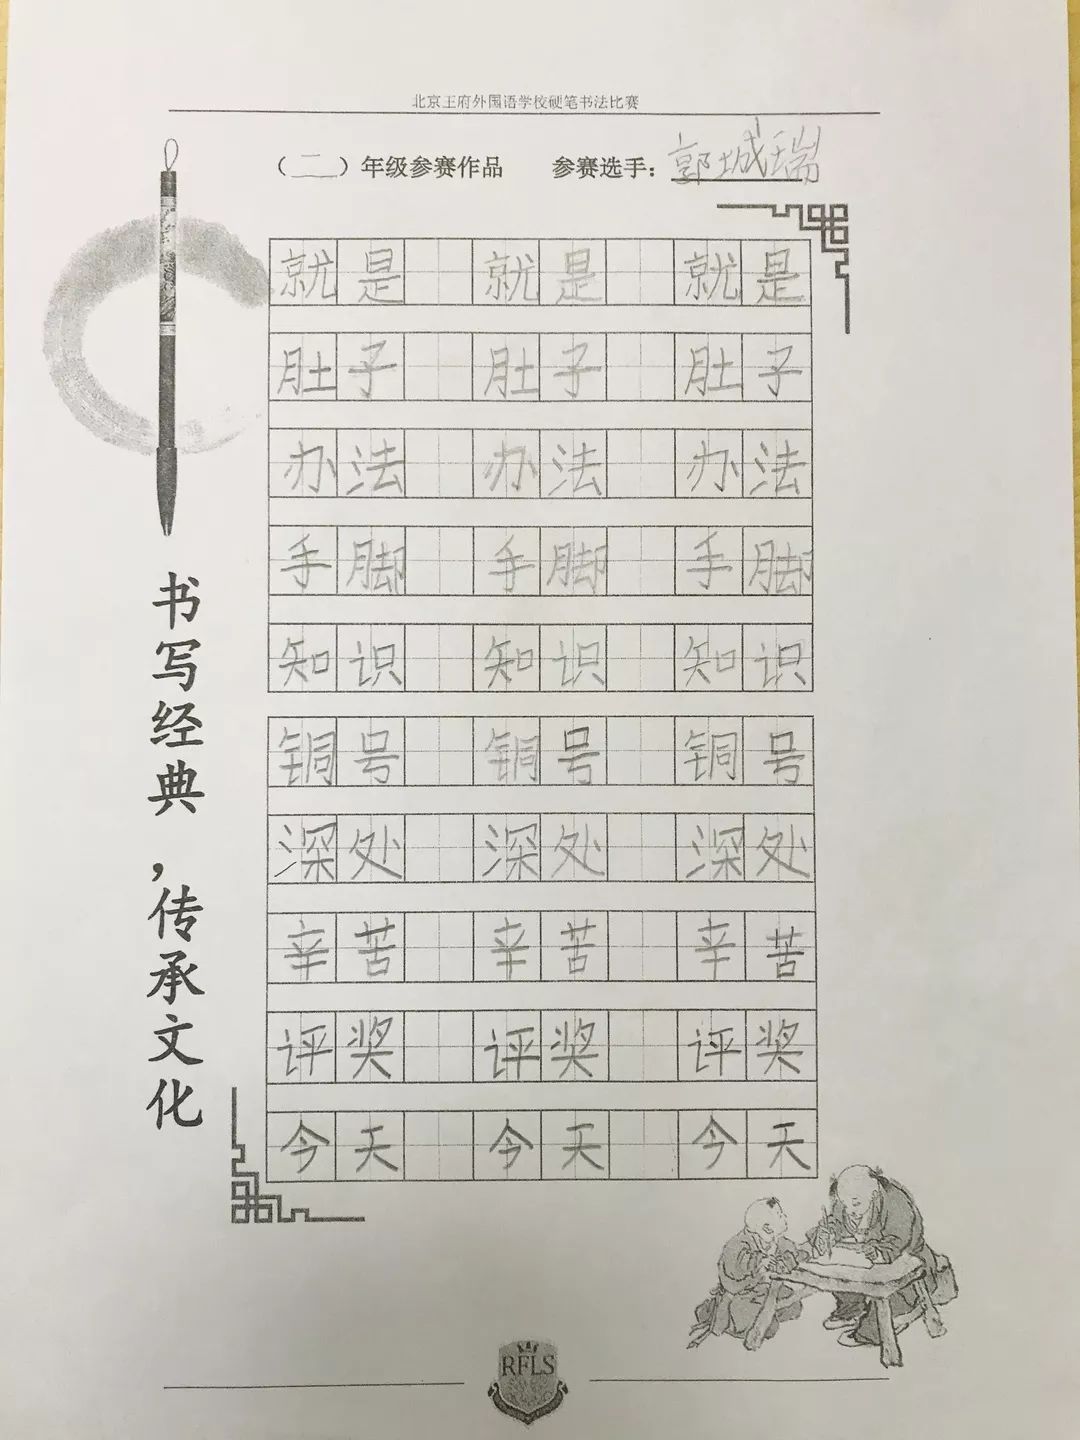 北京王府外国语学校硬笔书法比赛
（二）年级参赛作品 参赛选手：郭城瑞
就是 就是 就是
肚子 肚子 肚子
办法 办法 办法
手脚 手脚 手脚
知识 知识 知识
铜号 铜号 铜号
深处 深处 深处
辛苦 辛苦 辛苦
评奖 评奖 评奖
今天 今天 今天
书写经典，传承文化
RFLS